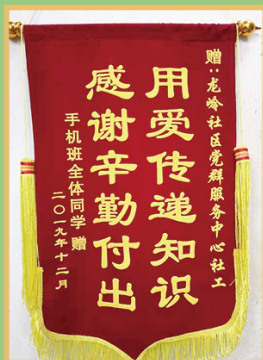 赠:龙岭社区党群服务中心社工
用爱传递知识
感谢辛勤付出
手机班全体同学 赠
二〇一九年十二月